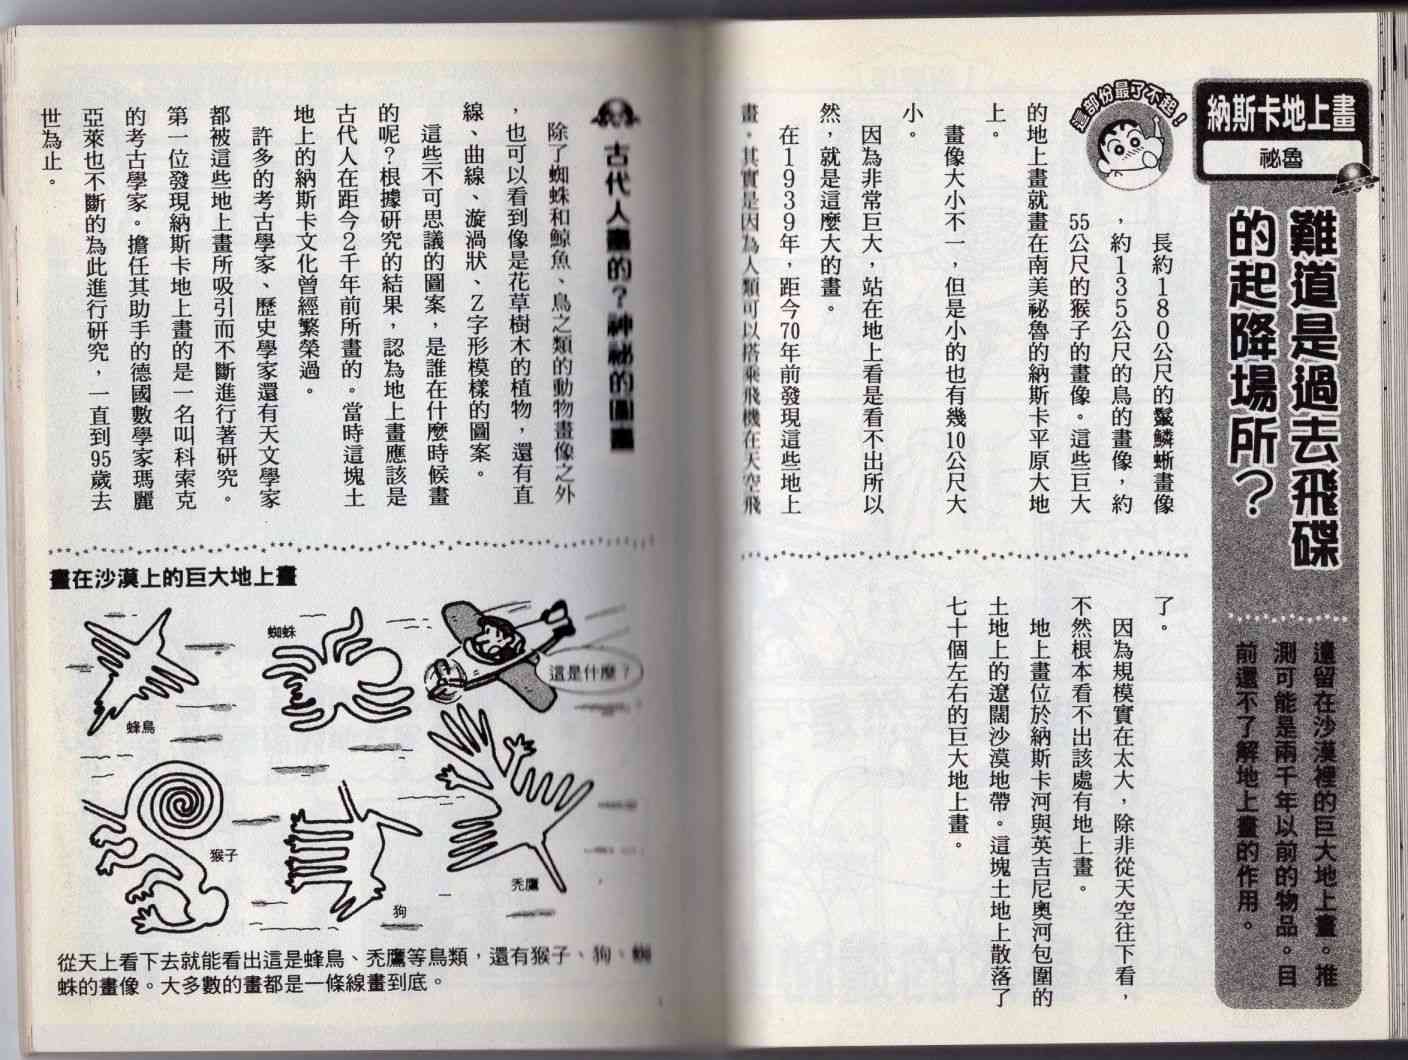 納斯卡地上畫
祕魯
難道是過去飛碟
的起降場所？
還留在沙漠裡的巨大地上畫。推
測可能是兩千年以前的物品。目
前還不了解地上畫的作用。
這部份最了不起！
長約180公尺的鬣鱗蜥畫像
，約135公尺的鳥的畫像，約
55公尺的猴子的畫像。這些巨大
的地上畫就畫在南美祕魯的納斯卡平原大地
上。
畫像大小不一，但是小的也有幾10公尺大
小。
因為非常巨大，站在地上看是看不出所以
然，就是這麼大的畫。
在1939年，距今70年前發現這些地上
畫，其實是因為人類可以搭乘飛機在天空飛
了。
因為規模實在太大，除非從天空往下看，
不然根本看不出該處有地上畫。
地上畫位於納斯卡河與英吉尼奧河包圍的
土地上的遼闊沙漠地帶。這塊土地上散落了
七十個左右的巨大地上畫。
古代人畫的？神祕的圖畫
除了蜘蛛和鯨魚、鳥之類的動物畫像之外
，也可以看到像是花草樹木的植物，還有直
線、曲線、漩渦狀、Z字形模樣的圖案。
這些不可思議的圖案，是誰在什麼時候畫
的呢？根據研究的結果，認為地上畫應該是
古代人在距今2千年前所畫的。當時這塊土
地上的納斯卡文化曾經繁榮過。
許多的考古學家、歷史學家還有天文學家
都被這些地上畫所吸引而不斷進行著研究。
第一位發現納斯卡地上畫的是一名叫科索克
的考古學家。擔任其助手的德國數學家瑪麗
亞萊也不斷的為此進行研究，一直到95歲去
世為止。
畫在沙漠上的巨大地上畫
蜘蛛
這是什麼？
蜂鳥
猴子
狗
禿鷹
從天上看下去就能看出這是蜂鳥、禿鷹等鳥類，還有猴子、狗、蜘
蛛的畫像。大多數的畫都是一條線畫到底。